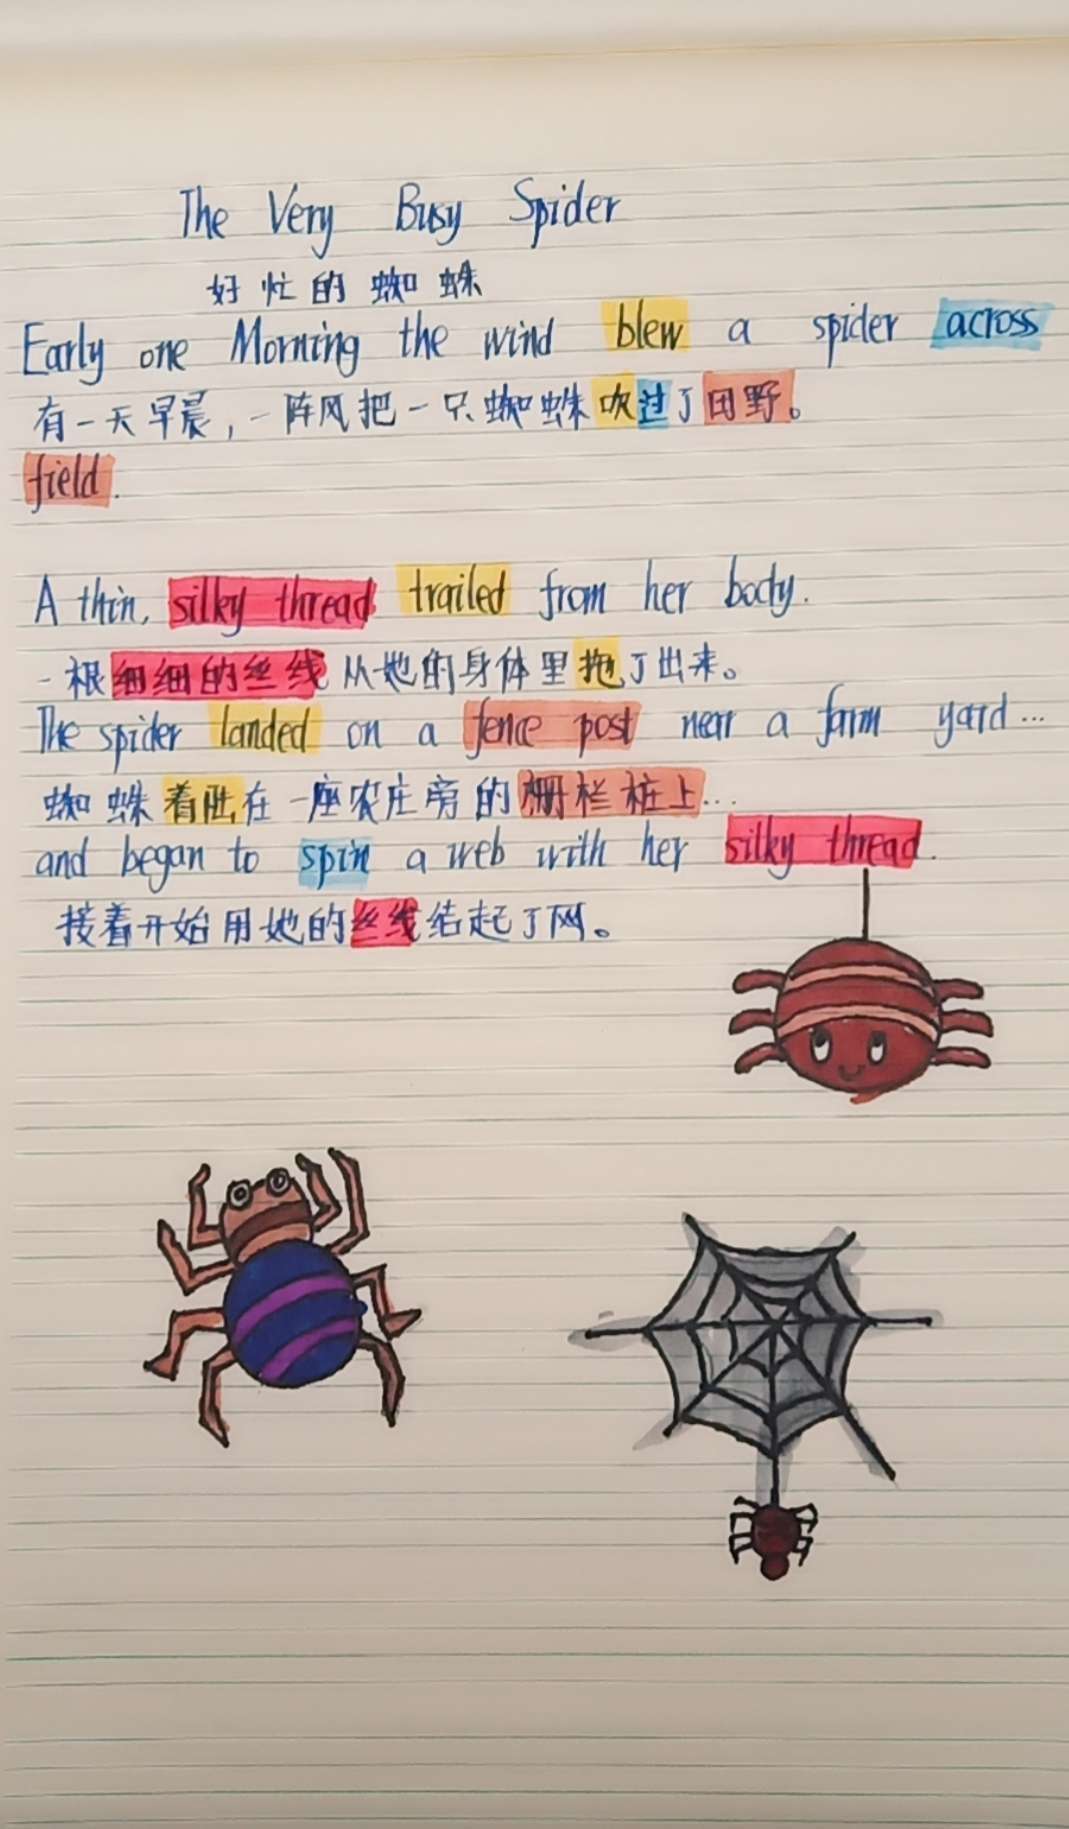 The Very Busy Spider
好忙的蜘蛛
Early one Morning the wind blew a spider across
有一天早晨，一阵风把一只蜘蛛吹过了田野。
field.
A thin, silky thread trailed from her body.
一根细细的丝线从她的身体里拖了出来。
The spider landed on a fence post near a farm yard...
蜘蛛着陆在一座农庄旁的栅栏桩上...
and began to spin a web with her silky thread.
接着开始用她的丝线结起了网。